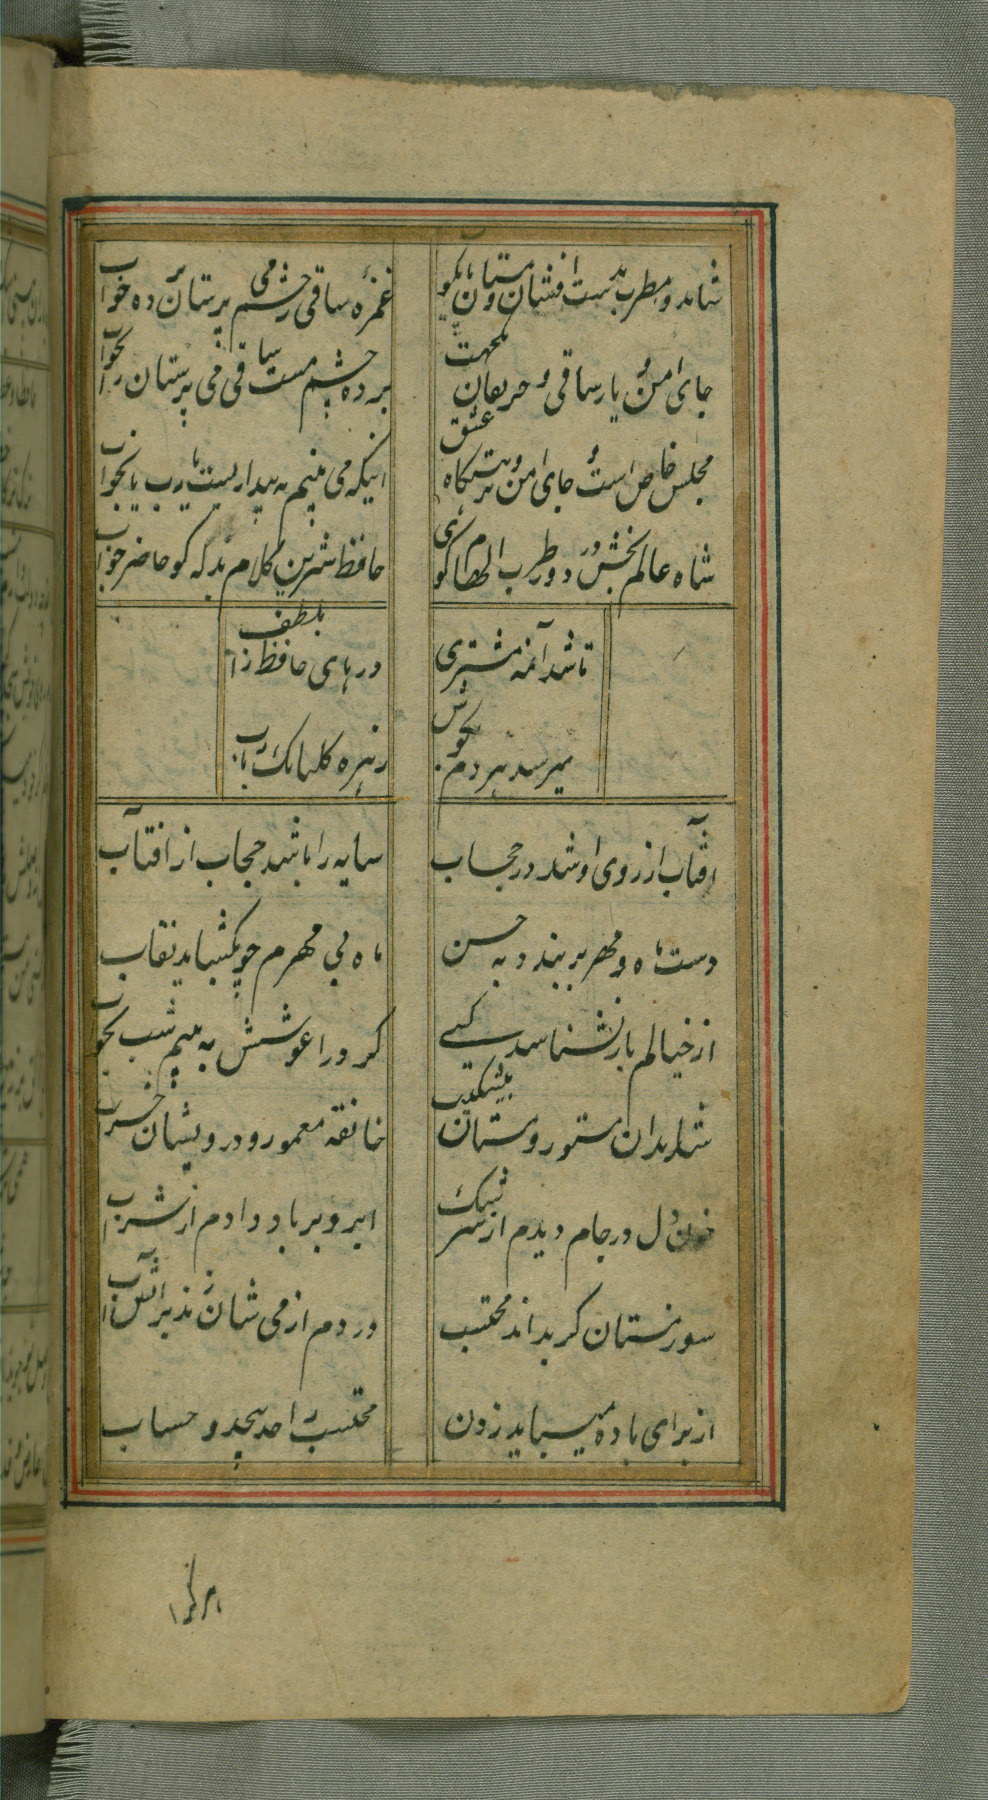 شاهد و مطرب بدست افشان و مستان پایکوب
غمزه ساقی ز چشم می پرستان برده خواب
جای امن و یار ساقی و حریفان یکجهت
برده چشم مست ساقی می پرستان را بخواب
مجلس خاص است و جای امن و نزهتگاه عشق
اینکه می بینم به بیداریست یا رب یا بخواب
شاه عالم بخش در دور طرب ایهام گوی
حافظ شیرین کلام بذله گو حاضر جواب
تا شد آنمه مشتری
درهای حافظ را بلطف
میرسد هر دم بگوش
زهره گلبانگ رباب
آفتاب از روی او شد در حجاب
سایه را باشد حجاب از آفتاب
دست ماه و مهر بر بندد به حسن
ماه بی مهرم چو بکشاید نقاب
از خیالم باز نشناسد کسی
گر ورا اغوشش به بینم شب بخواب
شاهدان مستور و مستان بیشکیب
خانقه معمور و درویشان خراب
خون دل در جام دیدم از سرشک
آبرو بر باد دادم از شراب
سوز مستان گر بداند محتسب
در دم از می شان زند بر آتش آب
از برای باده میباید زدن
محتسب را حد بیحد و حساب
هر کرا